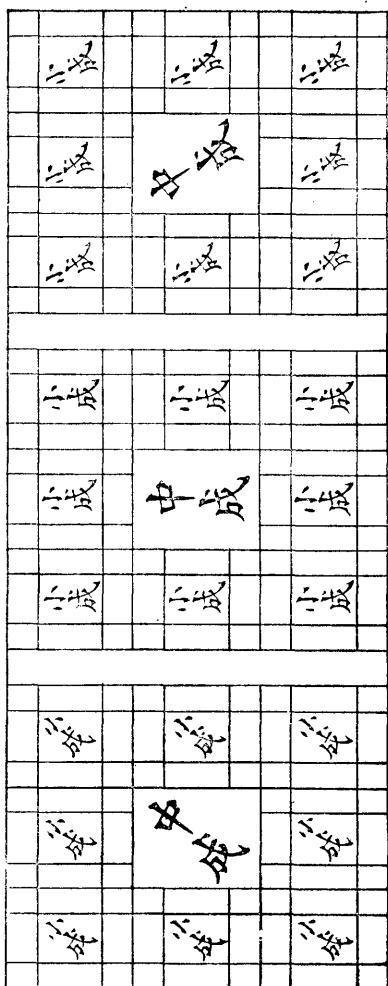 小成
小成
小成
小成
中成
小成
小成
小成
小成
小成
小成
小成
小成
中成
小成
小成
小成
小成
小成
小成
小成
小成
中成
小成
小成
小成
小成